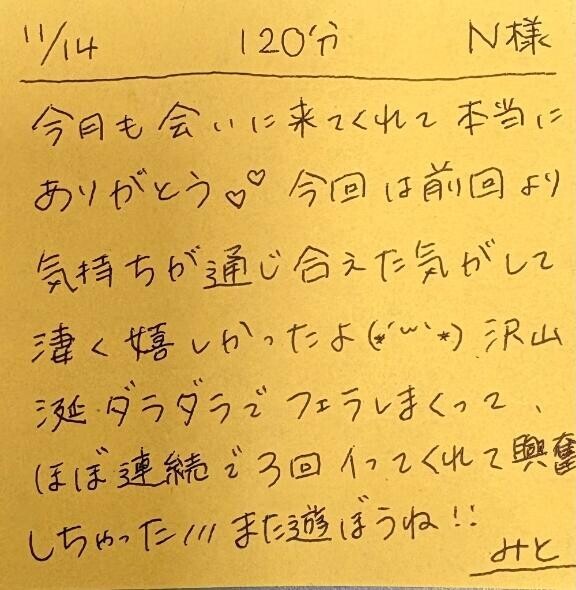 11/14 120分 N様
今月も会いに来てくれて本当に
ありがとう♡♡ 今回は前回より
気持ちが通じ合えた気がして
凄く嬉しかったよ(*´ω`*) 沢山
涎ダラダラでフェラしまくって、
ほぼ連続で3回イってくれて興奮
しちゃった/// また遊ぼうね!!
みと